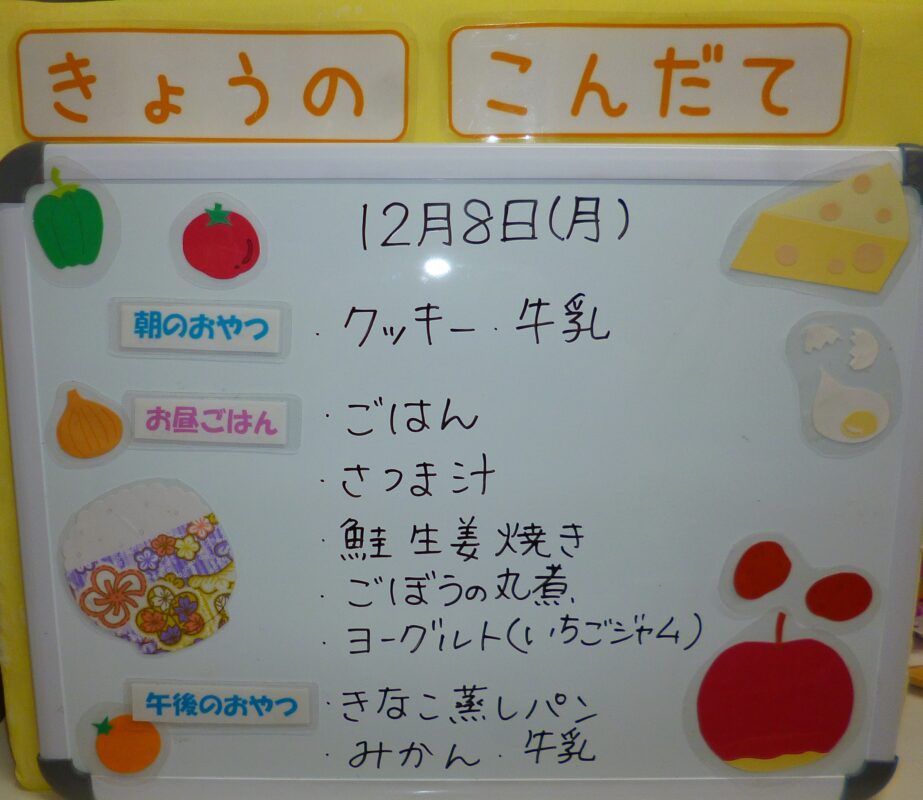 きょうの こんだて
12月8日(月)
朝のおやつ ・クッキー・牛乳
お昼ごはん ・ごはん
・さつま汁
・鮭生姜焼き
・ごぼうの丸煮
・ヨーグルト(いちごジャム)
午後のおやつ ・きなこ蒸しパン
・みかん・牛乳